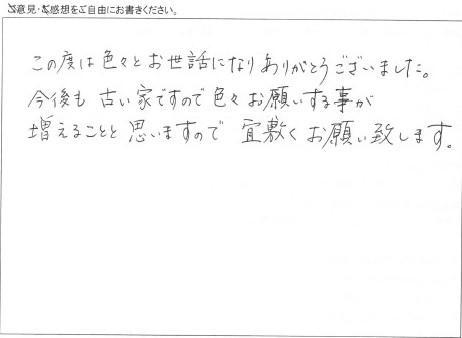 ご意見・ご感想をご自由にお書きください。
この度は色々とお世話になりありがとうございました。
今後も 古い家ですので色々お願いする事が
増えることと思いますので 宜敷くお願い致します。